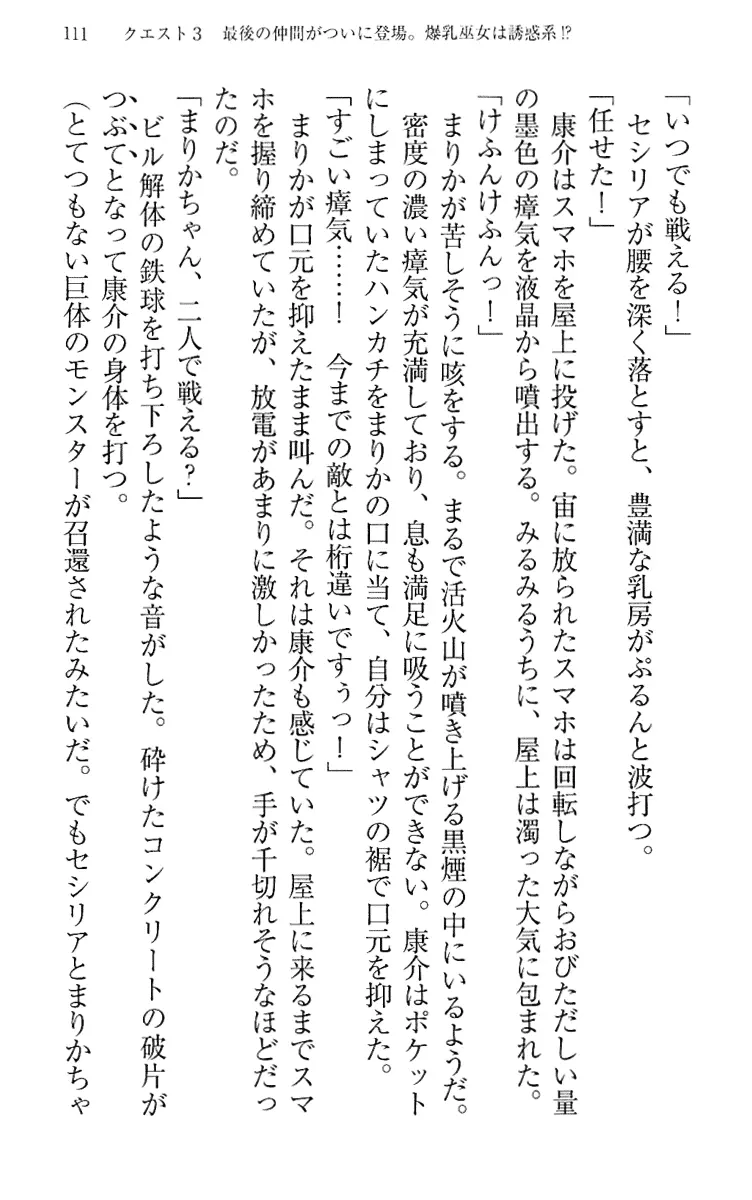 111　クエスト3　最後の仲間がついに登場。爆乳巫女は誘惑系!?
「いつでも戦える！」
　セシリアが腰を深く落とすと、豊満な乳房がぷるんと波打つ。
「任せた！」
　康介はスマホを屋上に投げた。宙に放られたスマホは回転しながらおびただしい量
の墨色の瘴気を液晶から噴出する。みるみるうちに、屋上は濁った大気に包まれた。
「けふんけふんっ！」
　まりかが苦しそうに咳をする。まるで活火山が噴き上げる黒煙の中にいるようだ。
　密度の濃い瘴気が充満しており、息も満足に吸うことができない。康介はポケット
にしまっていたハンカチをまりかの口に当て、自分はシャツの裾で口元を抑えた。
「すごい瘴気……！　今までの敵とは桁違いですぅっ！」
　まりかが口元を抑えたまま叫んだ。それは康介も感じていた。屋上に来るまでスマ
ホを握り締めていたが、放電があまりに激しかったため、手が千切れそうなほどだっ
たのだ。
「まりかちゃん、二人で戦える？」
　ビル解体の鉄球を打ち下ろしたような音がした。砕けたコンクリートの破片が
つぶてとなって康介の身体を打つ。
（とてつもない巨体のモンスターが召還されたみたいだ。でもセシリアとまりかちゃ